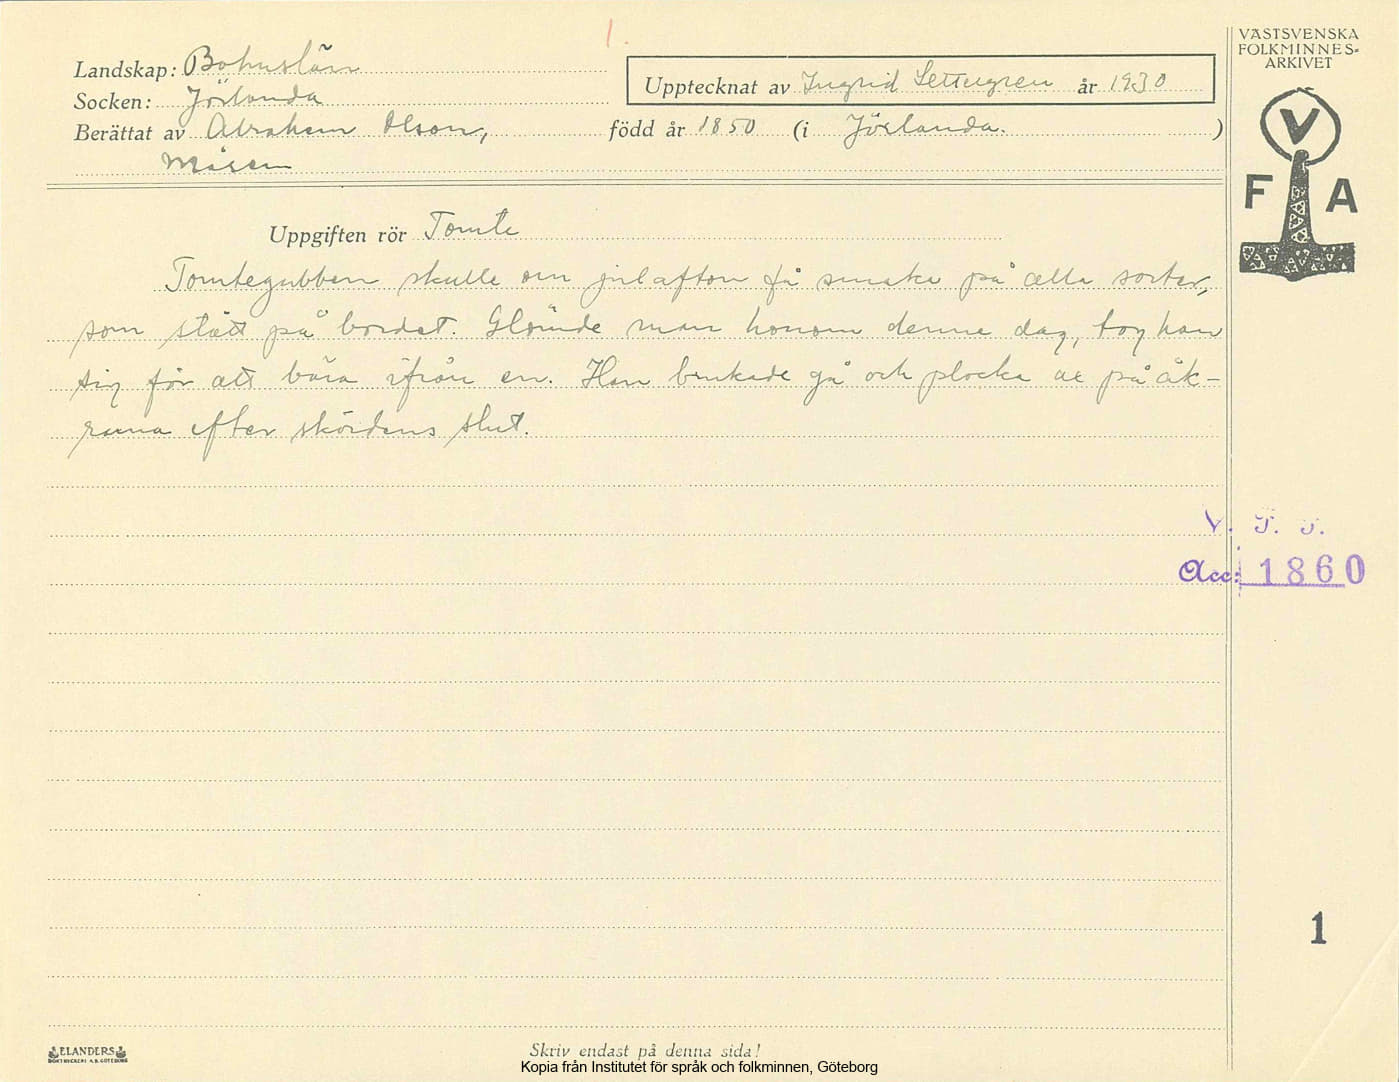 1.
VÄSTSVENSKA
FOLKMINNES-
ARKIVET
Landskap: Bohuslän
Upptecknat av Ingrid Settergren år 1930
Socken: Jörlanda
Berättat av Abraham Olson, född år 1850 (i Jörlanda. )
Måsen
V
F A
Uppgiften rör Tomte
Tomtegubben skulle om julafton få smaka på alla sorter,
som stått på bordet. Glömde man honom denna dag, tog han
sig för att bära ifrån en. Han brukade gå och plocka ax på åk-
rarna efter skördens slut.
V. F. F.
Acc: 1860
1
ELANDERS
BOKTRYCKERI A.B. GÖTEBORG
Skriv endast på denna sida!
Kopia från Institutet för språk och folkminnen, Göteborg